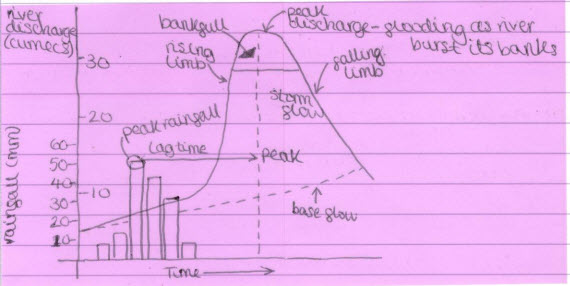 river
discharge
(cumecs)
bankfull
peak
discharge - flooding as river
burst its banks
rising
limb
falling
limb
30
storm
flow
20
peak rainfall
lag time
peak
60
50
40
30
20
10
10
rainfall (mm)
base flow
Time